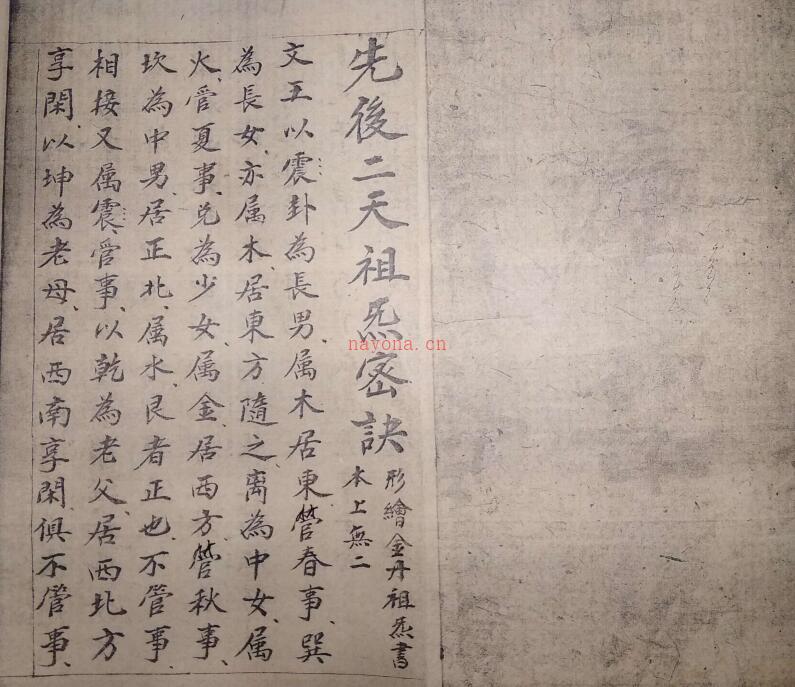 先後二天祖炁密訣
形繪金丹祖炁書
本上無二
文王以震卦為長男、属木居東、管春事、巽
為長女、亦属木、居東方隨之、离為中女、属
火、管夏事、兌為少女、属金、居西方、管秋事、
坎為中男、居正北、属水、艮者正也、不管事、
相接又属震、管事、以乾為老父、居西北方
享閑、以坤為老母、居西南享閑、俱不管事、
nayona.cn